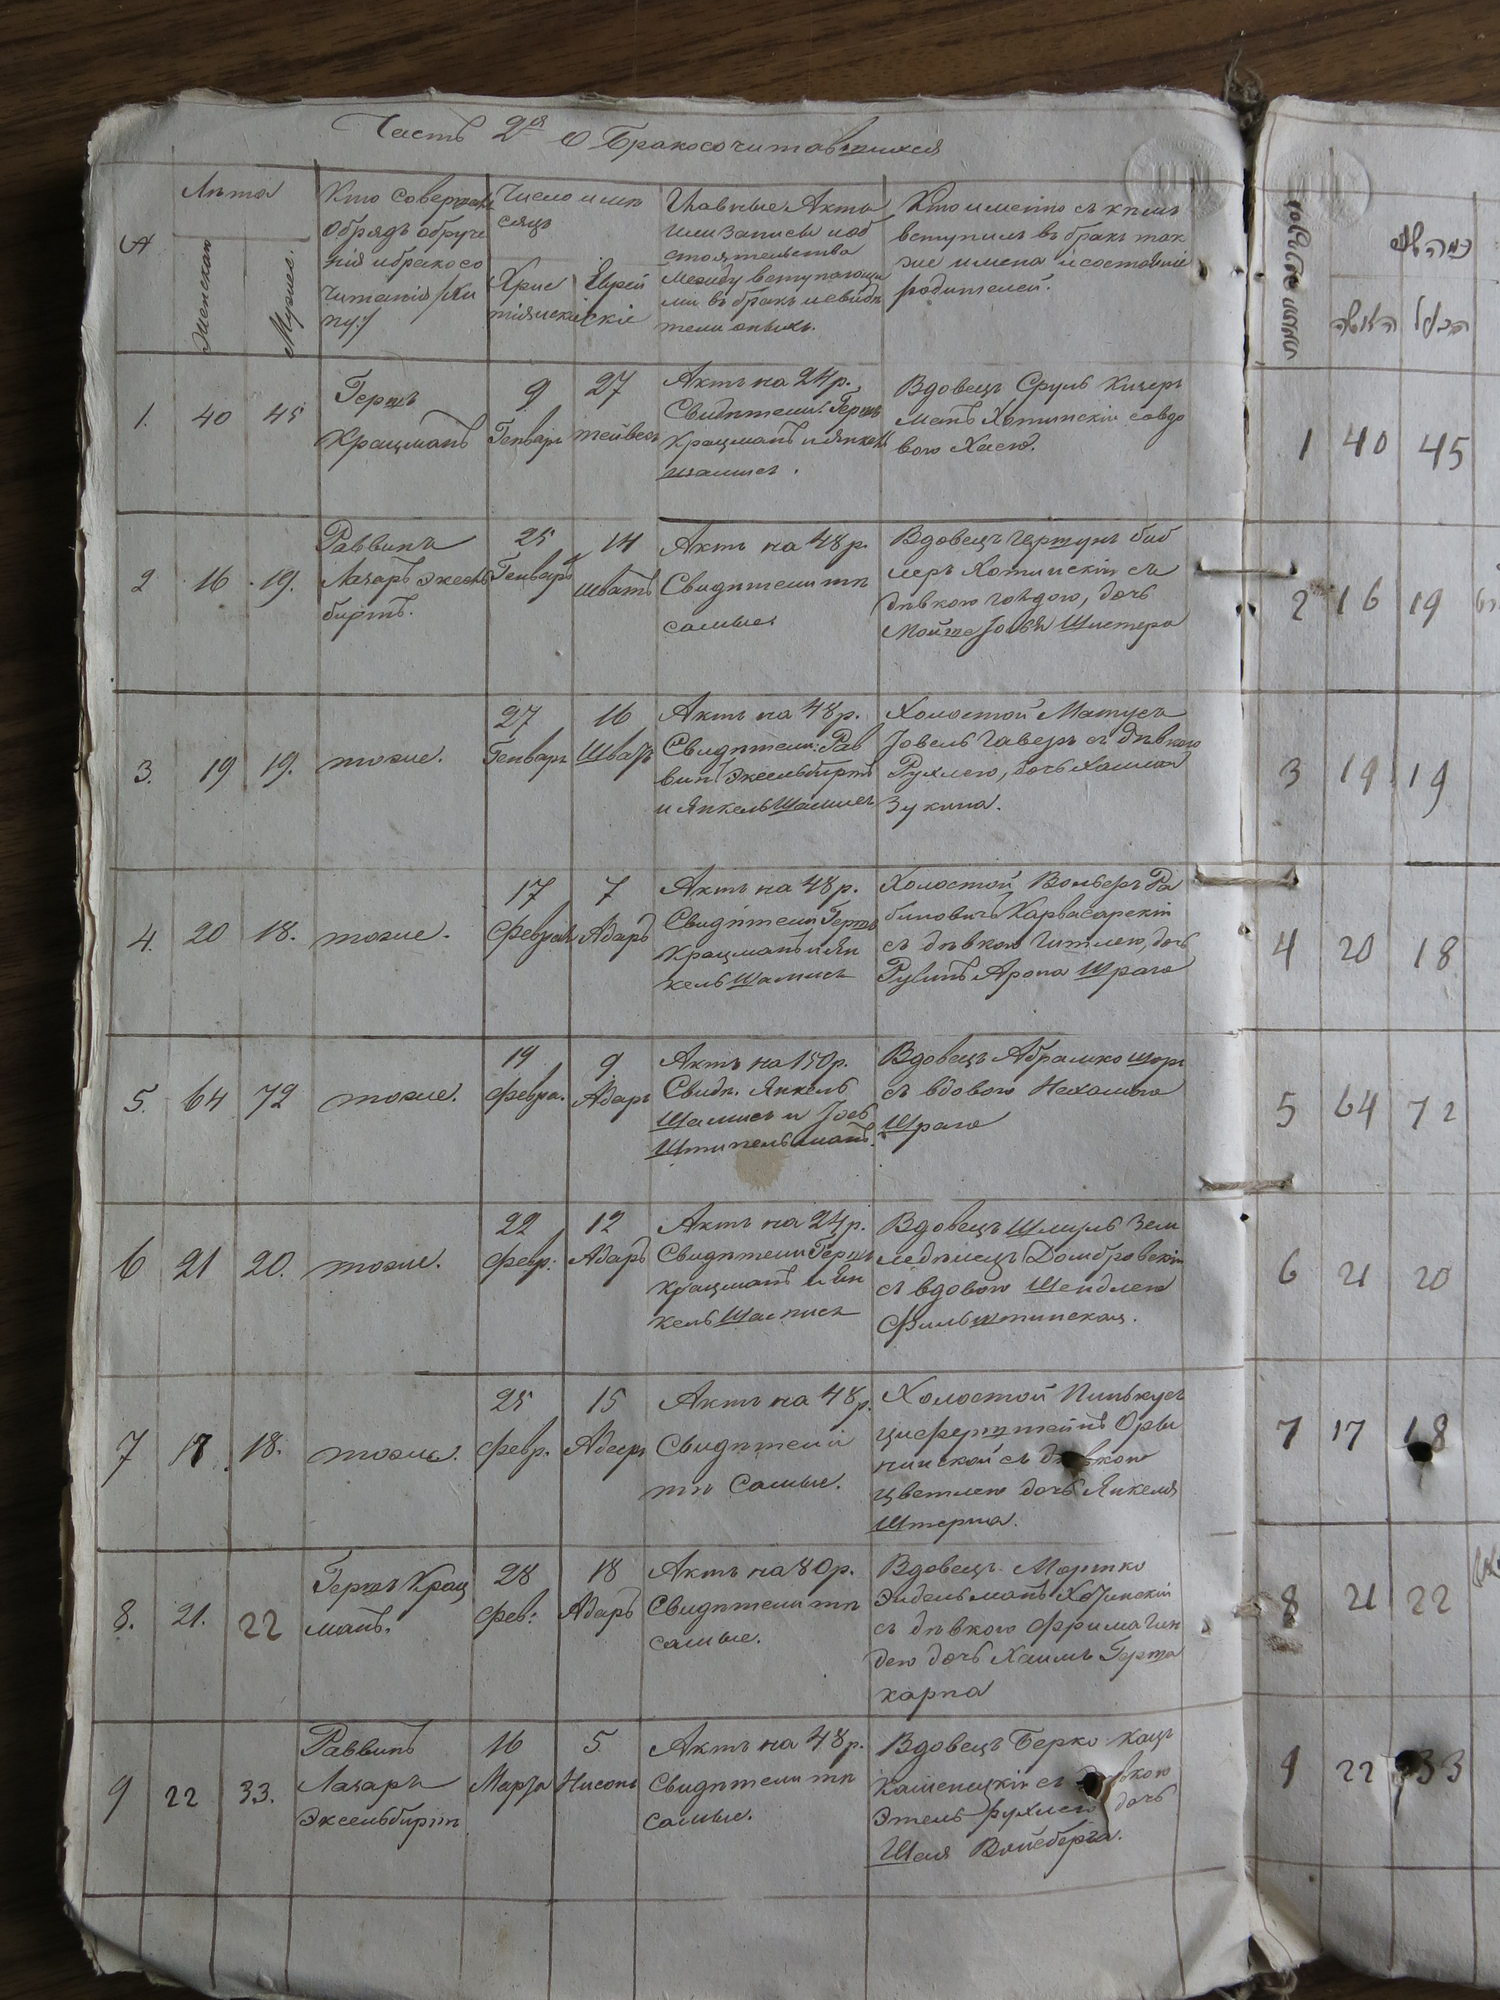 Часть 2ая о Бракосочитавшихся
№
Лѣта
Женская
Мужеск.
Кто совершал
обрядъ обруче
нія и бракосо
читанія
Число и мѣ
сяцъ
Хрис
тіянскій
Еврей
скіе
Главные Акты
или записи и об
стоятельства
между вступающи
ми въ бракъ и свидѣ
тели оныхъ.
Кто именно съ кѣмъ
вступилъ въ бракъ так
же имена и состояніе
родителей.
1. 40 45
Гершъ
Крацманъ
9
Генваря
27
тейвесъ
Актъ на 24 р.
Свидѣтели: Гершъ
Крацманъ и Янкель
Шамисъ.
Вдовецъ Сруль Кичер
манъ Хотинскій с вдо
вою Хаею.
2 16 19.
Раввинъ
Лазаръ Эксель
биртъ.
25
Генваря
14
Шватъ
Актъ на 48 р.
Свидѣтели тѣ
самые.
Вдовецъ
Хотинскій съ
дѣвкою Голдою, дочь
Мойше
3. 19 19.
тоже.
27
Генваря
16
Шватъ
Актъ на 48 р.
Свидѣтели: Рав
винъ Эксельбиртъ
и Янкель Шамисъ
Холостой Матусъ
Іовель Гаверъ съ дѣвкою
Рухлею, дочь Хаима
Зукина.
4. 20 18.
тоже.
17
Февраля
7
Адаръ
Актъ на 48 р.
Свидѣтели Гершъ
Крацманъ и Ян
кель Шамисъ
Холостой Вольверъ Ра
биновичъ Карвасарскій
съ дѣвкою Гитлею, дочь
Рувинъ Арона Шраго
5. 64 72
тоже.
19
Февра.
9
Адаръ
Актъ на 150 р.
Свидѣ. Янкель
Шамисъ и Іось
Штипельманъ.
Вдовецъ Абрамко Шор
съ вдовою Нехамою
Шраго
6 21 20.
тоже.
22
Февр:
12
Адаръ
Актъ на 24 р.
Свидѣтели Гершъ
Крацманъ и Ян
кель Шамисъ
Вдовецъ Шмуль Зем
ледѣлецъ Домбровскій
съ вдовою Шендлею
Фильштинская.
7 17 18.
тоже.
25
Февр.
15
Адаръ
Актъ на 48 р.
Свидѣтели
тѣ Самые.
Холостой Пинькусъ
Цыферштейнъ Оры
нинской съ дѣвкою
Цветлею дочь Янкеля
Штерна.
8. 21. 22
Гершъ Крац
манъ.
28
Фев:
18
Адаръ
Актъ на 80 р.
Свидѣтели тѣ
самые.
Вдовецъ Мортко
Эйдельманъ Хотинскій
съ дѣвкою Фрима Гин
дею дочь Хаимъ Герша
Карпа
9 22 33.
Раввинъ
Лазаръ
Эксельбиртъ
16
Марта
5
Нисонъ
Актъ на 48 р.
Свидѣтели тѣ
самые.
Вдовецъ Берко Кацъ
Каменицкій съ дѣвкою
Этель Рухлею дочь
Шая Вайсберга.
כמה שנים
האשה הבעל
1 40 45
2 16 19
3 19 19
4 20 18
5 64 72
6 21 20
7 17 18
8 21 22
9 22 33